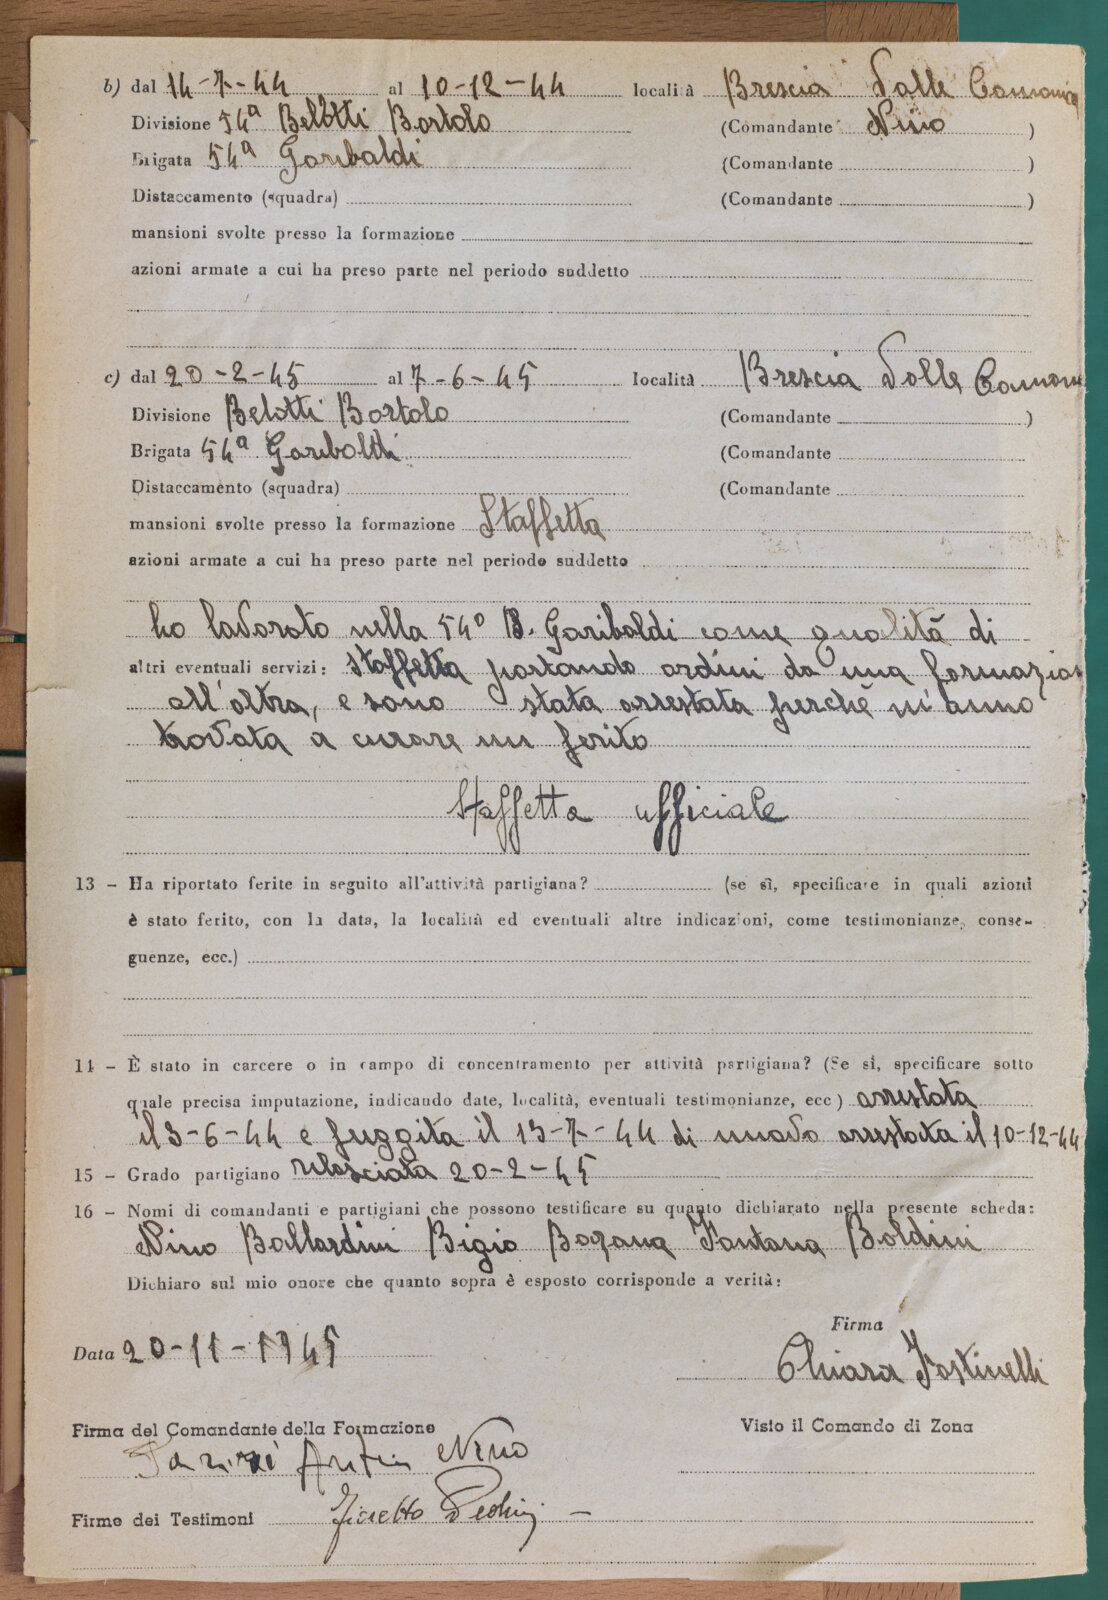 b) dal 14-7-44 al 10-12-44 località Brescia Valle Camonica
Divisione 54ª Belotti Bortolo (Comandante Nino )
Brigata 54ª Garibaldi (Comandante )
Distaccamento (squadra) (Comandante )
mansioni svolte presso la formazione
azioni armate a cui ha preso parte nel periodo suddetto
c) dal 20-2-45 al 7-6-45 località Brescia Valle Camoni
Divisione Belotti Bortolo (Comandante )
Brigata 54ª Garibaldi (Comandante
Distaccamento (squadra) (Comandante
mansioni svolte presso la formazione Staffetta
azioni armate a cui ha preso parte nel periodo suddetto
ho lavorato nella 54ª B. Garibaldi come qualità di
altri eventuali servizi: staffetta portando ordini da una formazion
all'altra, e sono stata arrestata perchè m'anno
trovata a curare un ferito
Staffetta ufficiale
13 - Ha riportato ferite in seguito all'attività partigiana? (se sì, specificare in quali azioni
è stato ferito, con la data, la località ed eventuali altre indicazioni, come testimonianze, conse-
guenze, ecc.)
14 - È stato in carcere o in campo di concentramento per attività partigiana? (Se sì, specificare sotto
quale precisa imputazione, indicando date, località, eventuali testimonianze, ecc) arrestata
il 3-6-44 e fuggita il 13-7-44 di nuovo arrestata il 10-12-44
15 - Grado partigiano rilasciata 20-2-45
16 - Nomi di comandanti e partigiani che possono testificare su quanto dichiarato nella presente scheda:
Nino Ballardini Bigio Bozana Fontana Boldini
Dichiaro sul mio onore che quanto sopra è esposto corrisponde a verità:
Firma
Data 20-11-1945
Chiara Fostinelli
Firma del Comandante della Formazione Visto il Comando di Zona
Nino
Firme dei Testimoni